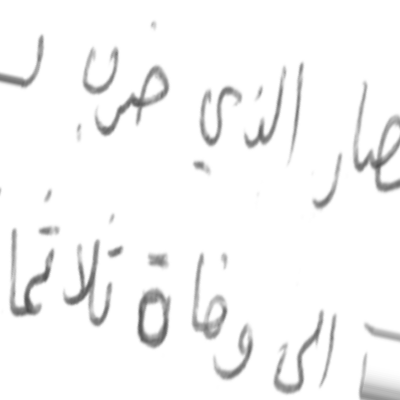 الذي ضرب
الى وفاة ثلاثما